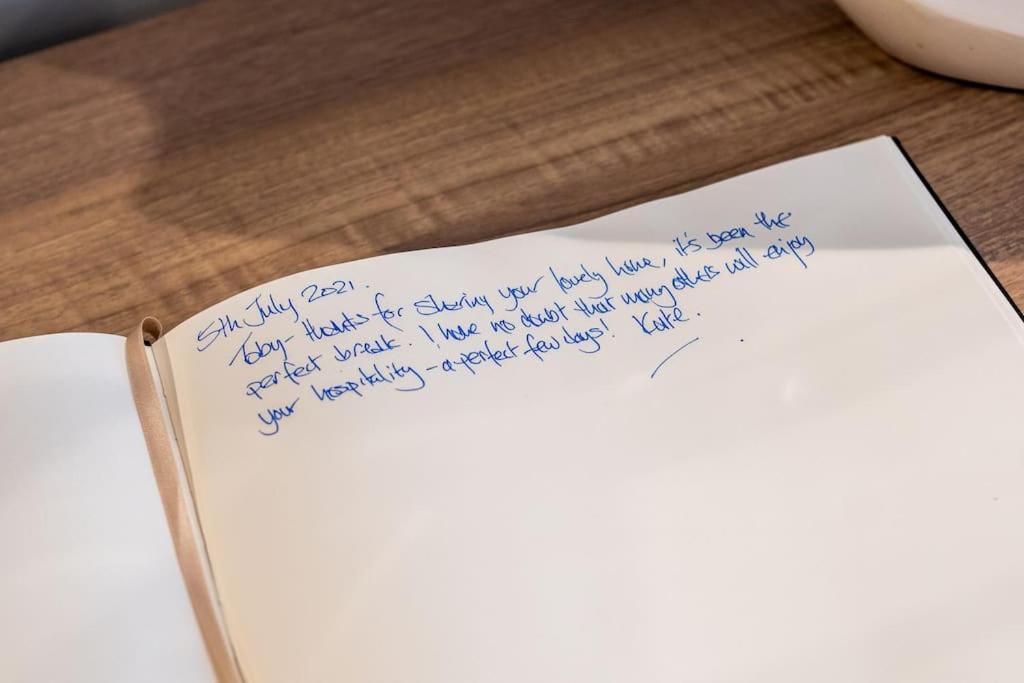 5th July 2021.
Toby - thanks for sharing your lovely home, it's been the
perfect break. I have no doubt that many others will enjoy
your hospitality - a perfect few days! Kate.